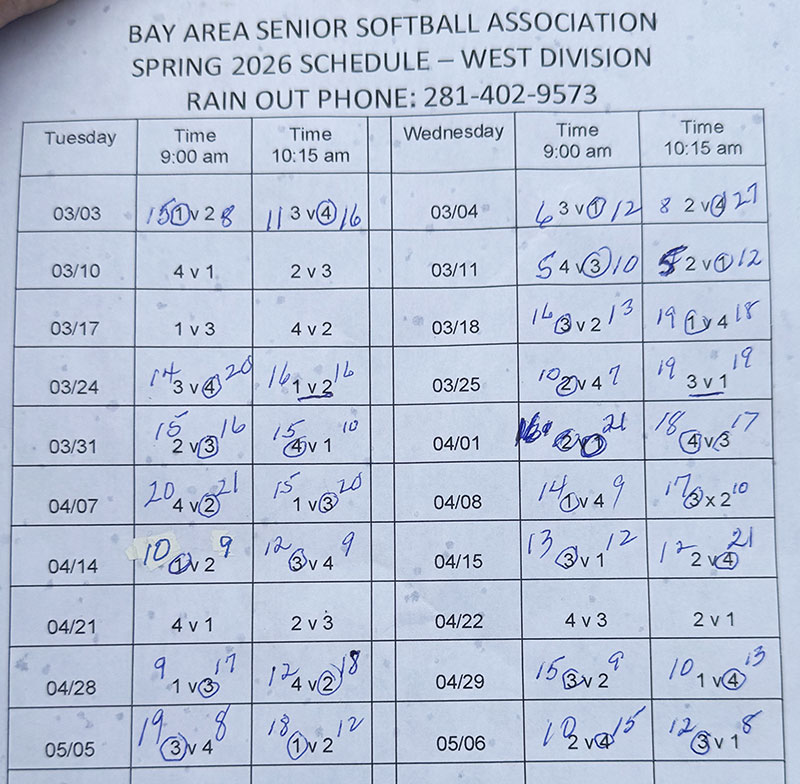 BAY AREA SENIOR SOFTBALL ASSOCIATION
SPRING 2026 SCHEDULE – WEST DIVISION
RAIN OUT PHONE: 281-402-9573
Tuesday Time 9:00 am Time 10:15 am Wednesday Time 9:00 am Time 10:15 am
03/03 15 1 v 2 8 11 3 v 4 16 03/04 6 3 v 1 12 8 2 v 4 27
03/10 4 v 1 2 v 3 03/11 5 4 v 3 10 5 2 v 1 12
03/17 1 v 3 4 v 2 03/18 16 3 v 2 13 19 1 v 4 18
03/24 14 3 v 4 20 16 1 v 2 16 03/25 10 2 v 4 7 19 3 v 1 19
03/31 15 2 v 3 16 15 4 v 1 10 04/01 2 v 1 21 18 4 v 3 17
04/07 20 4 v 2 21 15 1 v 3 20 04/08 14 1 v 4 9 17 3 x 2 10
04/14 10 1 v 2 9 12 3 v 4 9 04/15 13 3 v 1 12 12 2 v 4 21
04/21 4 v 1 2 v 3 04/22 4 v 3 2 v 1
04/28 9 1 v 3 17 12 4 v 2 18 04/29 15 3 v 2 9 10 1 v 4 13
05/05 19 3 v 4 8 18 1 v 2 12 05/06 2 v 4 15 12 3 v 1 8